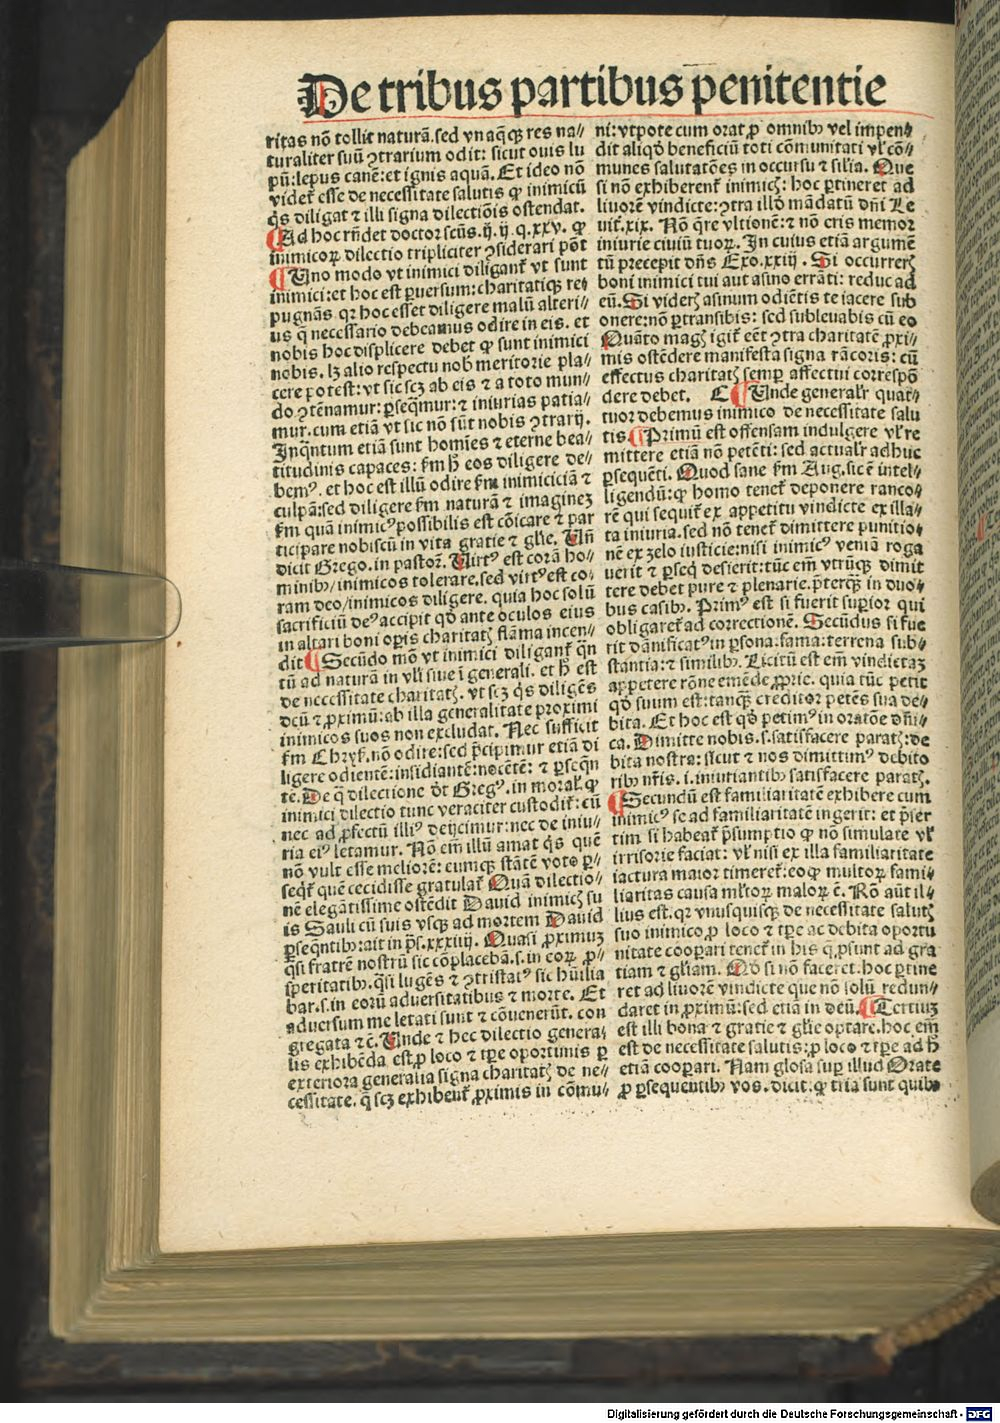 De tribus partibus penitentie
ritas nō tollit naturā.sed vnaq̄qꝫ res na⸗
turaliter suū ꝯtrarium odit: sicut ouis lu
pū:lepus canē:et ignis aquā. Et ideo nō
videt᷑ esse de necessitate salutis ꝙ inimicū
q̇s diligat ⁊ illi signa dilectiōis ostendat.
¶ Ad hoc rn̄det doctor scūs.ij.ij.q.xxv. ꝙ
inimicoꝝ dilectio tripliciter ꝯsiderari pōt
¶ Uno modo vt inimici diligant᷑ vt sunt
inimici:et hoc est ꝑuersum:charitatiqꝫ re⸗
pugnās. qꝛ hoc esset diligere malū alteri⸗
us q̄ necessario debeamus odire in eis. et
nobis hoc displicere debet ꝙ sunt inimici
nobis. lꝫ alio respectu nob̓ meritorie pla⸗
cere potest: vt sic scꝫ ab eis ⁊ a toto mun⸗
do ꝯtēnamur: ꝑseq̄mur: ⁊ iniurias patia⸗
mur.cum etiā vt sic nō sūt nobis ꝯtrarij.
Inq̄ntum etiā sunt homīes ⁊ eterne bea⸗
titudinis capaces: ẜm hͦ eos diligere de⸗
bemꝰ. et hoc est illū odire ẜm inimiciciā ⁊
culpā:sed diligere ẜm naturā ⁊ imagineꝫ
ẜm quā inimicꝰ possibilis est cōicare ⁊ par
ticipare nobiscū in vita gratie ⁊ gl̓ie. Un̄
dicit Grego. in pastoꝝ. Uirtꝰ est corā ho⸗
minibꝰ/inimicos tolerare.sed virtꝰ est co⸗
ram deo/inimicos diligere. quia hoc solū
sacrificiū deꝰ accipit qd̓ ante oculos eius
in altari boni oꝑis charitatꝭ flāma incen⸗
dit ¶ Secūdo mō vt inimici diligant᷑ q̄n
tū ad naturā in vl̓i siue ī generali. et hͦ est
de necessitate charitatꝭ. vt scꝫ q̇s diligēs
deū ⁊ ꝓximū: ab illa generalitate proximi
inimicos suos non excludat. Nec sufficit
ẜm Chryẜ. nō odire:sed p̄cipimur etiā di
ligere odientē:insidiantē:nocētē: ⁊ ꝑseq̄n
tē. De q̄ dilectione dōt Gregꝰ.in moral̓. ꝙ
inimici dilectio tunc veraciter custodit᷑: cū
nec ad ꝓfectū illiꝰ deijcimur:nec de iniu⸗
ria eiꝰ letamur. Nō em̄ illū amat q̇s quē
nō vult esse meliorē: eumqꝫ stātē voto ꝑ⸗
seqt᷑ quē cecidisse gratulat᷑ Quā dilectio⸗
nē elegātissime ostēdit Dauid inimicꝭ su
is Sauli cū suis vsqꝫ ad mortem Dauid
ꝑseq̄ntibꝰ:ait in p̄s.xxxiiij. Quasi ꝓximuꝫ
q̄si fratrē nostrū sic cōplacebā.s.in eoꝝ ꝓ⸗
speritatibꝰ. q̄si lugēs ⁊ ꝯtristatꝰ sic hūilia
bar.s.in eorū aduersitatibus ⁊ morte. Et
aduersum me letati sunt ⁊ cōuenerūt. con
gregata ⁊ cē. Unde ⁊ hec dilectio genera⸗
lis exhibēda est ꝓ loco ⁊ tp̄e oportunis ꝑ
exteriora generalia signa charitatꝭ de ne⸗
cessitate. q̄ scꝫ exhibent᷑ ꝓximis in cōmu⸗
ni: vtpote cum orat ꝓ omnibꝰ vel impen⸗
dit aliqd̓ beneficiū toti cōmunitati vl̓ cō⸗
munes salutatōes in occursu ⁊ sil̓ia. Que
si nō exhiberent᷑ inimicꝭ: hoc ꝑtineret ad
liuorē vindicte:ꝯtra illd̓ mādatū dn̄i Le
uit̓.xix. Nō q̄re vltionē: ⁊ nō eris memor
iniurie ciuiū tuoꝝ. In cuius etiā argumē
tū precepit dn̄s Exo.xxiij. Si occurrerꝭ
boni inimici tui aut asino errāti: reduc ad
eū. Si viderꝭ asinum odiētis te iacere sub
onere:nō ꝑtransibis: sed subleuabis cū eo
Quāto magꝭ igit᷑ eēt ꝯtra charitatē ꝓxi⸗
mis ostēdere manifesta signa rācoris: cū
effectus charitatꝭ semꝑ affectui correspō
dere debet. C ¶ Unde general̓r quat⸗
tuor debemus inimico de necessitate salu
tis. ¶ Primū est offensam indulgere vl̓ re
mittere etiā nō petēti: sed actual̓r adhuc
ꝑsequēti. Quod sane ẜm Aug.sic ē intel⸗
ligendū:ꝙ homo tenet᷑ deponere ranco⸗
rē qui sequit᷑ ex appetitu vindicte ex illa⸗
ta iniuria.sed nō tenet᷑ dimittere punitio⸗
nē ex zelo iusticie:nisi inimicꝰ veniā roga
uerit ⁊ ꝑseq̇ desierit:tūc em̄ vtrūqꝫ dimit
tere debet pure ⁊ plenarie. p̄terqꝫ in duo⸗
bus casibꝰ. Primꝰ est si fuerit suꝑior qui
obligaret᷑ ad correctionē. Secūdus si fue
rit dānificatꝰ in ꝑsona:fama:terrena sub⸗
stantia: ⁊ similibꝰ. Licitū est em̄ vindictaꝫ
appetere rōne emēde ꝓprie. quia tūc petit
qd̓ suum est:tanqꝫ creditor petēs sua de⸗
bita. Et hoc est qd̓ petimꝰ in oratōe dn̄i⸗
ca. Dimitte nobis.s.satisfacere paratꝭ:de
bita nostra: sicut ⁊ nos dimittimꝰ debito
ribꝰ nr̄is. i. iniuriantibꝰ satisfacere paratꝭ.
¶ Secundū est familiaritatē exhibere cum
inimicꝰ se ad familiaritatē ingerit: et p̄ser
tim si habeat᷑ p̄sumptio ꝙ nō simulate vl̓
irrisorie faciat: vl̓ nisi ex illa familiaritate
iactura maior timeret᷑:eo ꝙ multoꝝ fami⸗
liaritas causa ml̓toꝝ maloꝝ ē. Rō aūt il⸗
lius est. qꝛ vnusquisqꝫ de necessitate salutꝭ
suo inimico ꝓ loco ⁊ tp̄e ac debita oportu
nitate cooꝑari tenet᷑ in his q̄ ꝓsunt ad gra
tiam ⁊ gl̓iam. Qd̓ si nō faceret.hoc ꝑtine
ret ad liuorē vindicte que nō solū redun⸗
daret in ꝓximū:sed etiā in deū. ¶ Tertiuꝫ
est illi bona ⁊ gratie ⁊ gl̓ie optare.hoc em̄
est de necessitate salutis:ꝓ loco ⁊ tp̄e ad hͦ
etiā cooꝑari. Nam glosa suꝑ illud Orate
ꝓ ꝑsequentibꝰ vos. dicit: ꝙ tria sunt quibꝰ
Digitalisierung gefördert durch die Deutsche Forschungsgemeinschaft - DFG